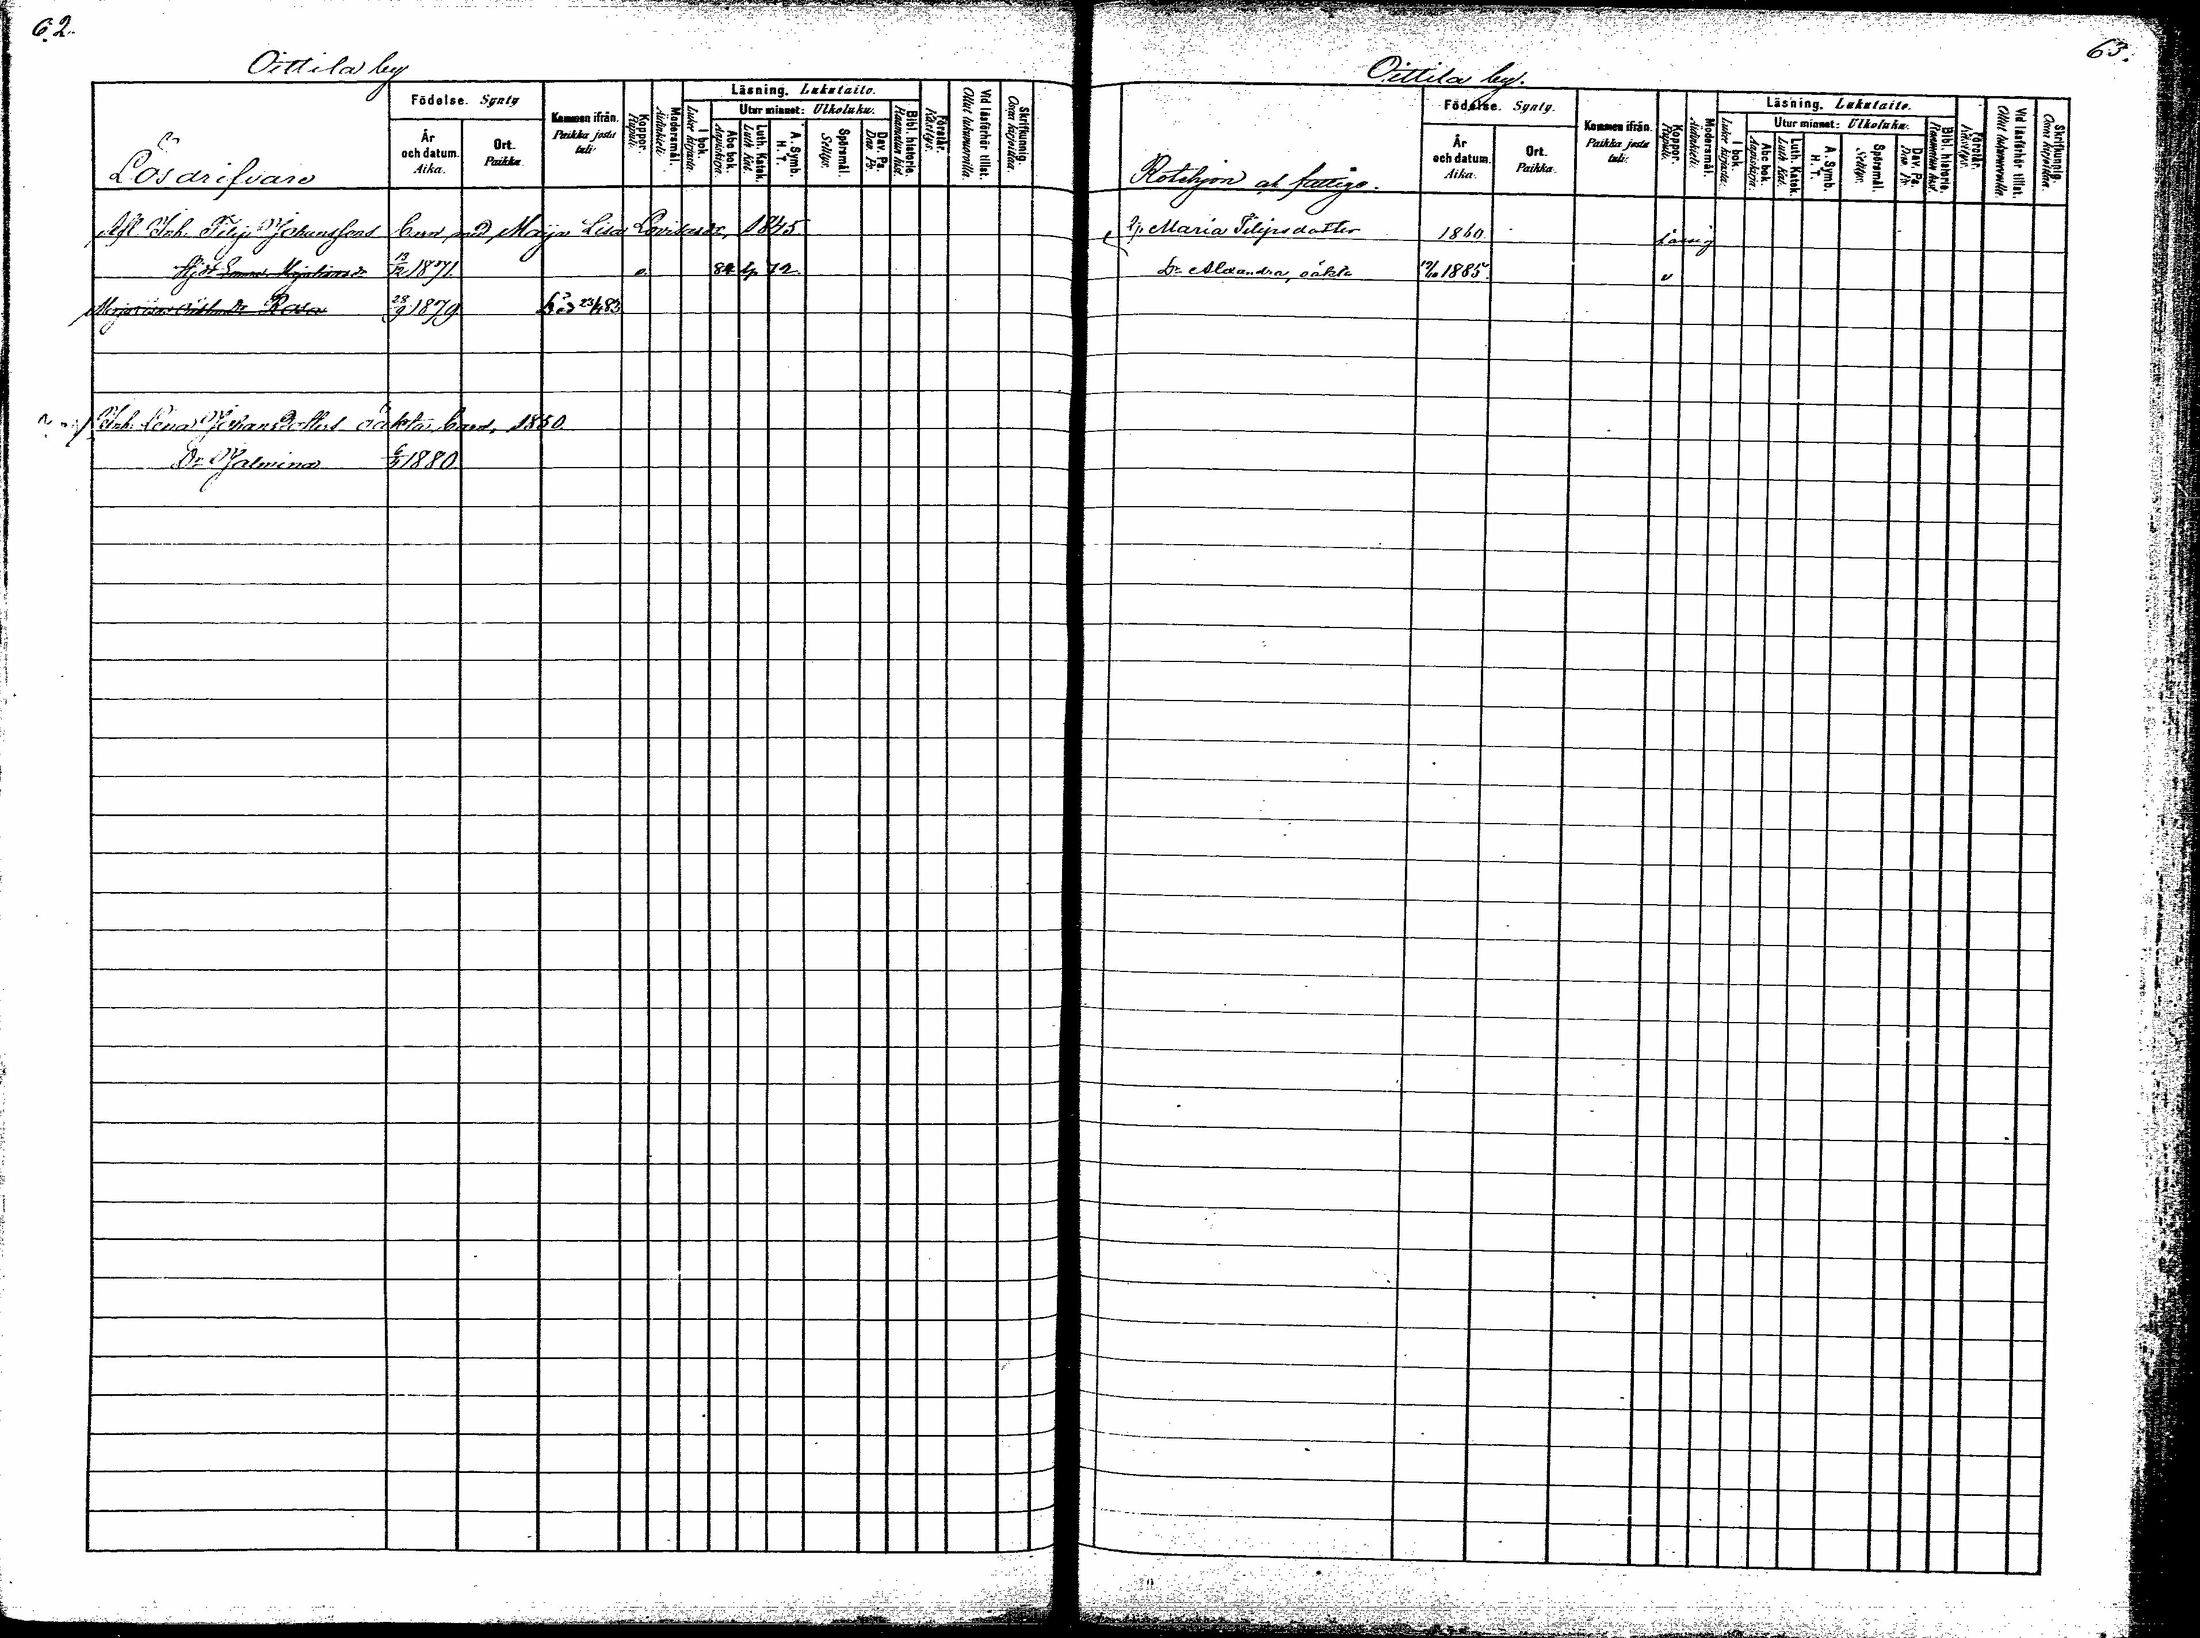 62.
Oittila by
Lösdrifvare
Födelse. Synty
År och datum. Aika.
Ort. Paikka.
Kommen ifrån. Paikka josta tuli.
Koppor. Rupuli.
Modersmål. Äidinkieli.
Läsning. Lukutaito.
I bok. Lukee kirjasta.
Utur minnet: Ulkoluku.
Abc bok. Aapiskirja.
Luth. Katek. Luth Kat.
A. Symb. H. T.
Spörsmål.
Dav. Ps. Dav. Ps.
Bibl. historie. Raamatun hist.
Förstår. Käsitys.
Vid läsförhör tillst. Ollut lukuvuorilla.
Skrifkunnig. Osaa kirjoittaa.
Afl. Inh. Filip Johanssons barn med Maija Lisa Lovisasdr, 1845.
13/12 1871. 84 72
Rosa 28/9 1879 död 23/4 83
Inh. Lena Johansdotters oäkta barn, 1850.
Dr Hjalmina 1880
63.
Oittila by.
Rotehjon af fattige.
Födelse. Synty.
År och datum. Aika.
Ort. Paikka.
Kommen ifrån. Paikka josta tuli:
Koppor. Rupuli.
Modersmål. Äidinkieli.
Läsning. Lukutaito.
I bok. Lukee kirjasta.
Utur minnet: Ulkoluku.
Abc bok. Aapiskirja.
Luth. Katek. Luth Kat.
A. Symb. H. T.
Spörsmål.
Dav. Ps. Dav. Ps.
Bibl. historie. Raamatun hist.
Förstår. Käsitys.
Vid läsförhör tillst. Ollut lukuvuorilla.
Skrifkunnig. Osaa kirjoittaa.
Maria Filipsdotter 1860
Dr Alexandra, oäkta 1885 v